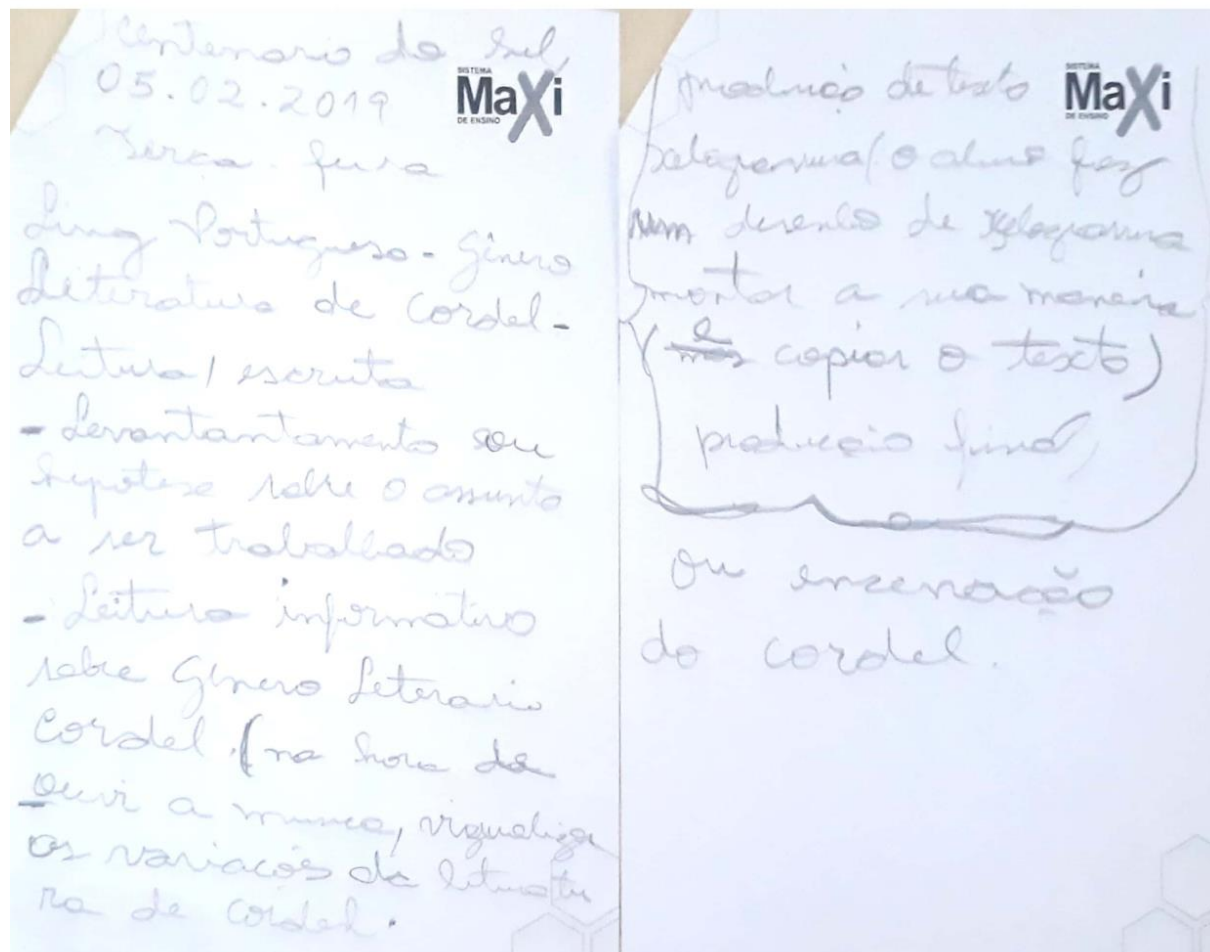 Centenario do Sul,
05.02.2019
SISTEMA
MaXi
DE ENSINO
Terça - feira
Ling Portuguesa - Gênero
Literatura de Cordel -
Leitura / escrita
- Levantantamento ou
hipotese sobre o assunto
a ser trabalhado
- Leitura informativo
sobre Gênero Leterario
Cordel. (na hora de
ouvir a musica, vizualizar
as variacões da literatu
ra de cordel.
produção de texto
SISTEMA
MaXi
DE ENSINO
xelogravura / o aluno faz
um desenho de xelogravura
montar a sua maneira
(e copiar o texto)
producão final,
ou encenação
do cordel.